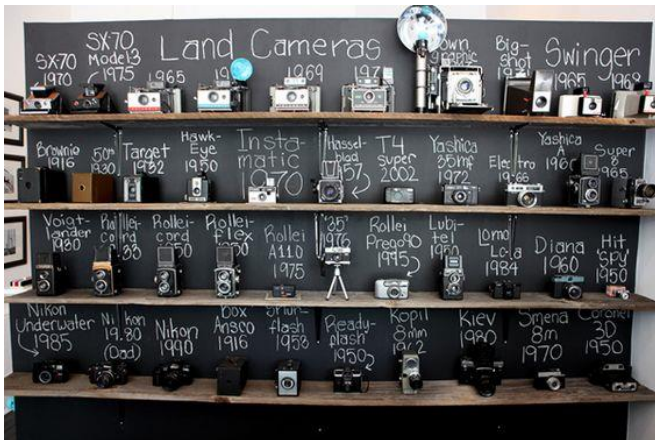 SX-70
1970
SX-70
Model 3
1975
Land Cameras
1965
1969
Big-
shot
Swinger
1965
1968
Brownie
1916
50th
1930
Target
1932
Hawk-
Eye
1950
Insta-
matic
1970
Hassel-
blad
1957
T4
super
2002
Yashica
35mf
1972
Electro
1966
Yashica
Super
8
1965
Voigt-
lander
1930
Rollei-
cord
Rollei-
flex
Rollei
A110
1975
"35"
Rollei
Prego 90
1995
Lubi-
tel
1950
Lomo
Lc-a
1984
Diana
1960
Hit
"spy"
1950
Nikon
Underwater
1985
Nikon
1980
(Dad)
Nikon
1990
Box
Ansco
1916
flash
1958
Ready-
flash
1950
8mm
Kiev
1980
Smena
8m
1970
Coronet
3D
1950